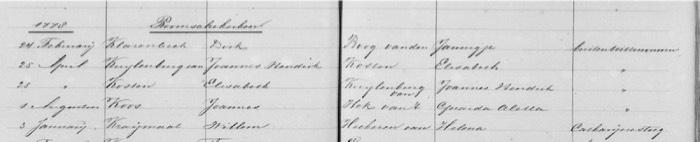 1778
24 February Klarenbeek Dirk Boog van den Jannigje
25 April Kuylenburg van Joannes Hendrik Kosten Elisabeth "
25 " Kosten Elisabeth Kuylenburg van Joannes Hendrik "
1 Augustus Koos Joannes Hek van 't Gerarda Aletta "
3 January Kraijmaat Willem Helena Catharijnesteeg